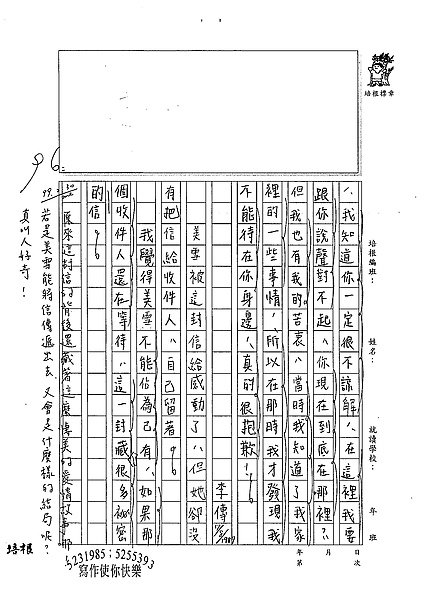 培根標章
培根編班： 姓名： 就讀學校： 年 班
月 日
年 第 次
，我知道你一定很不諒解，在這裡我要
跟你說聲對不起，你現在到底在那裡？
但我也有我的苦衷，當時我知道了我家
裡的一些事情，所以在那時我才發現我
不能待在你身邊，真的很抱歉！
李傳
美雲被這封信給感動了，但她卻沒
有把信給收件人，自己留著。
我覺得美雲不能佔為己有，如果那
個收件人還在等待，這一封藏很多祕密
的信。
96
原來這封信的背後還藏著這麼傳美的愛情故事，那
若是美雲能將信傳遞出去，又會是什麼樣的結局呢？
真叫人好奇！
培根
5231985；5255393
寫作使你快樂